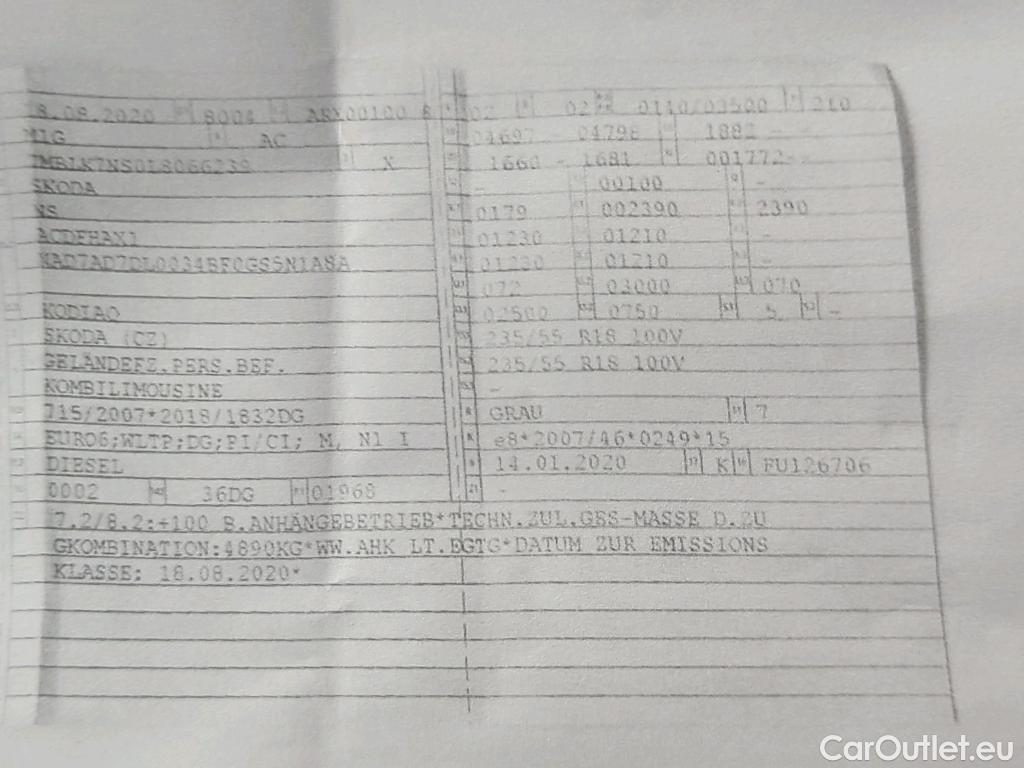 8.08.2020 8004 ABX00100 8 02 02 0110/03500 210
M1G AC 04697- 04798 1882 -
TMBLK7NS0L8066239 X 1660 - 1681 001772-
SKODA - 00100 -
NS 0179 002390 2390
ACDFHAX1 01230 01210 -
01230 01210 -
072 03000 070
KODIAQ 02500 0750 5 -
SKODA (CZ) 235/55 R18 100V
GELÄNDEFZ.PERS.BEF. 235/55 R18 100V
KOMBILIMOUSINE -
715/2007*2018/1832DG GRAU 7
EURO6;WLTP;DG;PI/CI; M, N1 I e8*2007/46*0249*15
DIESEL 14.01.2020 K FU126706
0002 36DG 01968 -
7.2/8.2:+100 B.ANHÄNGEBETRIEB*TECHN.ZUL.GES-MASSE D.ZU
GKOMBINATION:4890KG*WW.AHK LT.EGTG*DATUM ZUR EMISSIONS
KLASSE: 18.08.2020*
CarOutlet.eu